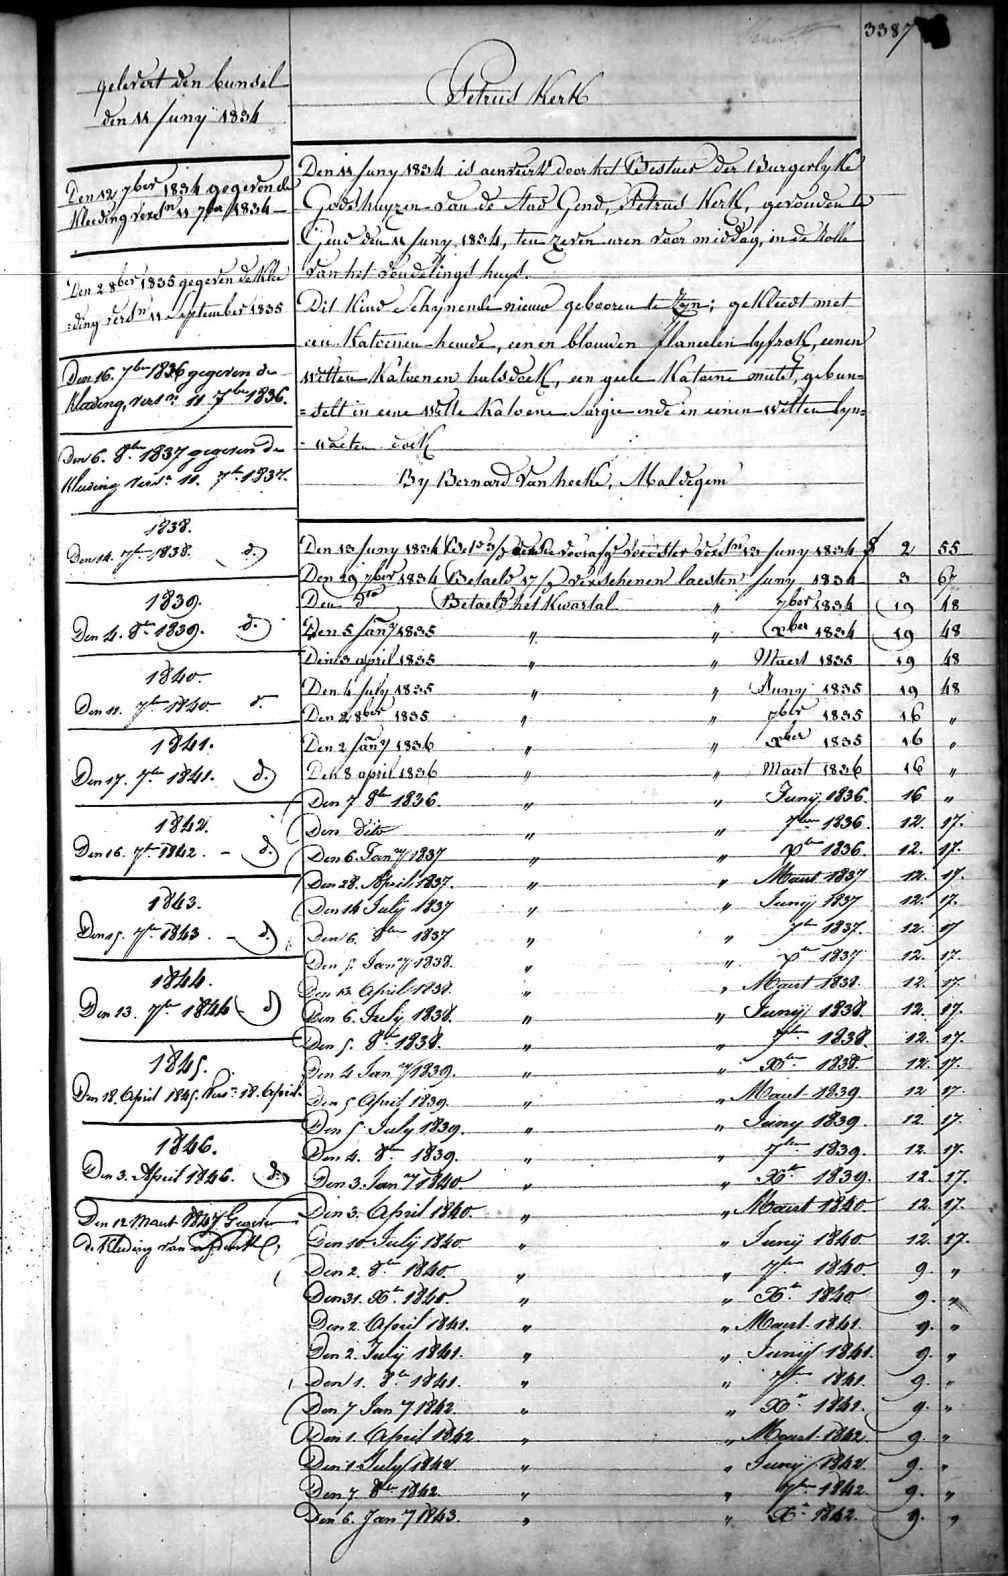 3387
gelevert den bundel
den 11 Juny 1834
Den 12 7ber 1834 gegeven de
Kleeding versn 11 7ber 1834
Den 2 8ber 1835 gegeven de klee
=ding versn 11 September 1835
Den 16. 7ber 1836 gegeven de
Kleeding, versn 11 7ber 1836.
Den 6. 8ber 1837 gegeven de
Kleeding versn 11. 7br 1837.
1838.
Den 14. 7br 1838. d.)
1839.
Den 4. 8br 1839. d.)
1840.
Den 11. 7br 1840. d.
1841.
Den 17. 7br 1841. d.)
1842.
Den 16. 7br 1842. - d.)
1843.
Den 15. 7br 1843. - d.)
1844.
Den 13. 7br 1844 - d)
1845.
Den 18. April 1845. Versn 18. April.
1846.
Den 3. April 1846. d.)
Den 12 Maert 1847 Gegeven
de Kleeding van
Petrus Kerk
Den 11 Juny 1834 is aenveerd door het Bestuer der Burgerlyke
Godshuyzen van de Stad Gend, Petrus Kerk, gevonden te
Gend den 11 Juny 1834, ten zeven uren voor middag, in de Rolle
van het vondelings huys.
Dit Kind schynende nieuw gebooren te zyn; gekleedt met
een Katoenen hemde, eenen blauwen flanelen lyfrok, eenen
witten Katoenen halsdoek, een geele Katoene mutse, gebun=
=selt in eene witte Katoene sargie ende in eenen witten lyn=
=waeten doek
By Bernard Van hecke, Maldegem
Den 13 Juny 1834 versn 13 Juny 1834 f 2 55
Den 29 7ber 1834 Betaeld 17 verschenen laesten Juny 1834 3 67
Den dto Betaeld het Kwartal " 7ber 1834 19 48
Den 5 Jany 1835 " " Xber 1834 19 48
Den 3 april 1835 " " Maert 1835 19 48
Den 4 July 1835 " " Juny 1835 19 48
Den 2 8ber 1835 " " 7ber 1835 16 "
Den 2 Jany 1836 " " Xber 1835 16 "
Den 8 april 1836 " " Maert 1836 16 "
Den 7 8br 1836. " " Junÿ 1836. 16 "
Den dito " " 7ber 1836. 12. 17.
Den 6. Jany 1837 " " Xbr 1836. 12. 17.
Den 28. April 1837. " " Maert 1837 12. 17.
Den 14 Julÿ 1837 " " Junÿ 1837 12. 17.
Den 6. 8br 1837 " " 7br 1837. 12. 17
Den 5. Jany 1838. " " Xbr 1837 12. 17.
Den 13. April 1838. " " Maert 1838. 12. 17.
Den 6. Julÿ 1838. " " Junÿ 1838. 12. 17.
Den 5. 8br 1838. " " 7br 1838. 12. 17.
Den 4 Jany 1839. " " Xbr 1838. 12. 17.
Den 5 April 1839. " " Maert 1839. 12 17.
Den 5 July 1839. " " Juny 1839. 12 17.
Den 4. 8br 1839. " " 7br 1839. 12. 17.
Den 3. Jany 1840 " " Xbr 1839. 12. 17.
Den 3. April 1840. " " Maert 1840 12. 17.
Den 10. Julÿ 1840. " " Junÿ 1840 12. 17.
Den 2. 8br 1840. " " 7br 1840. 9. "
Den 31. Xbr 1840. " " Xbr 1840 9. "
Den 2. April 1841. " " Maert 1841. 9. "
Den 2. Julÿ 1841. " " Junÿ 1841. 9. "
Den 1. 8br 1841. " " 7br 1841. 9. "
Den 7 Jany 1842. " " Xbr 1841. 9. "
Den 1. April 1842 " " Maert 1842 9. "
Den 1 July 1842. " " Juny 1842 9. "
Den 7. 8br 1842. " " 7br 1842. 9. "
Den 6. Jany 1843. " " Xbr 1842. 9. "